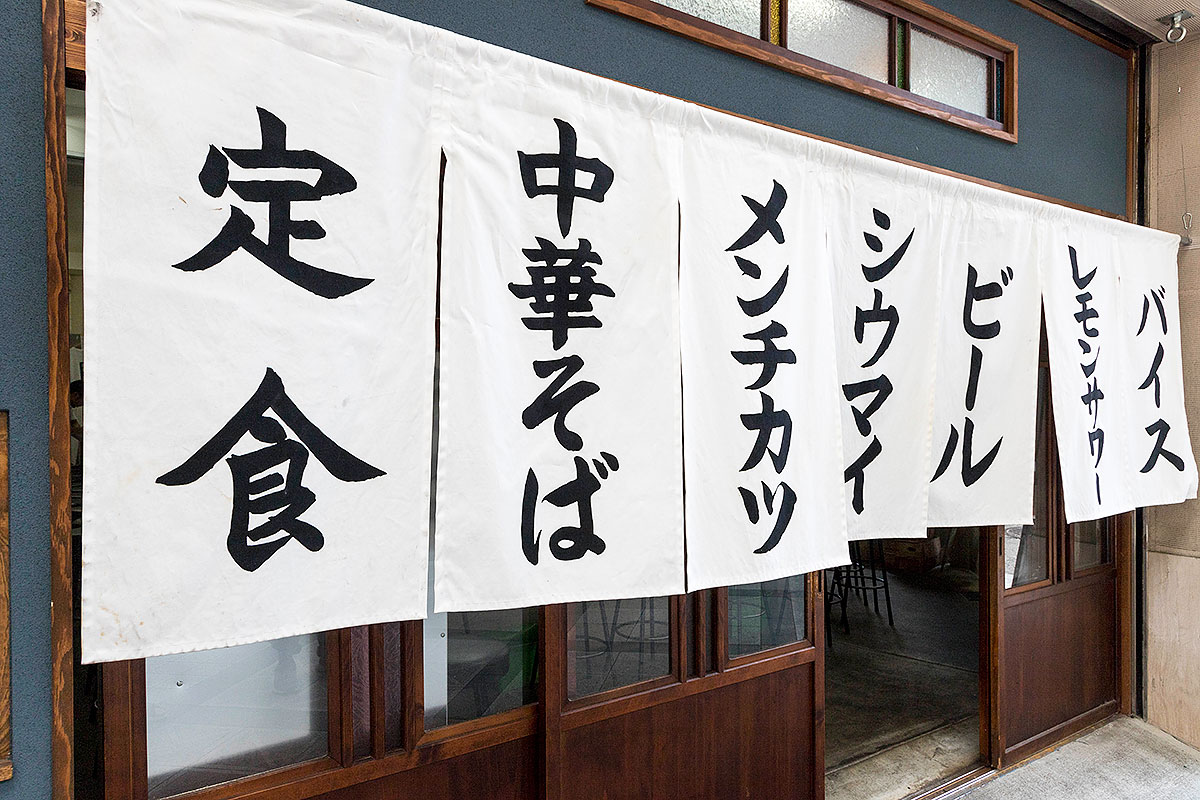 定食
中華そば
メンチカツ
シウマイ
ビール
レモンサワー
バイス